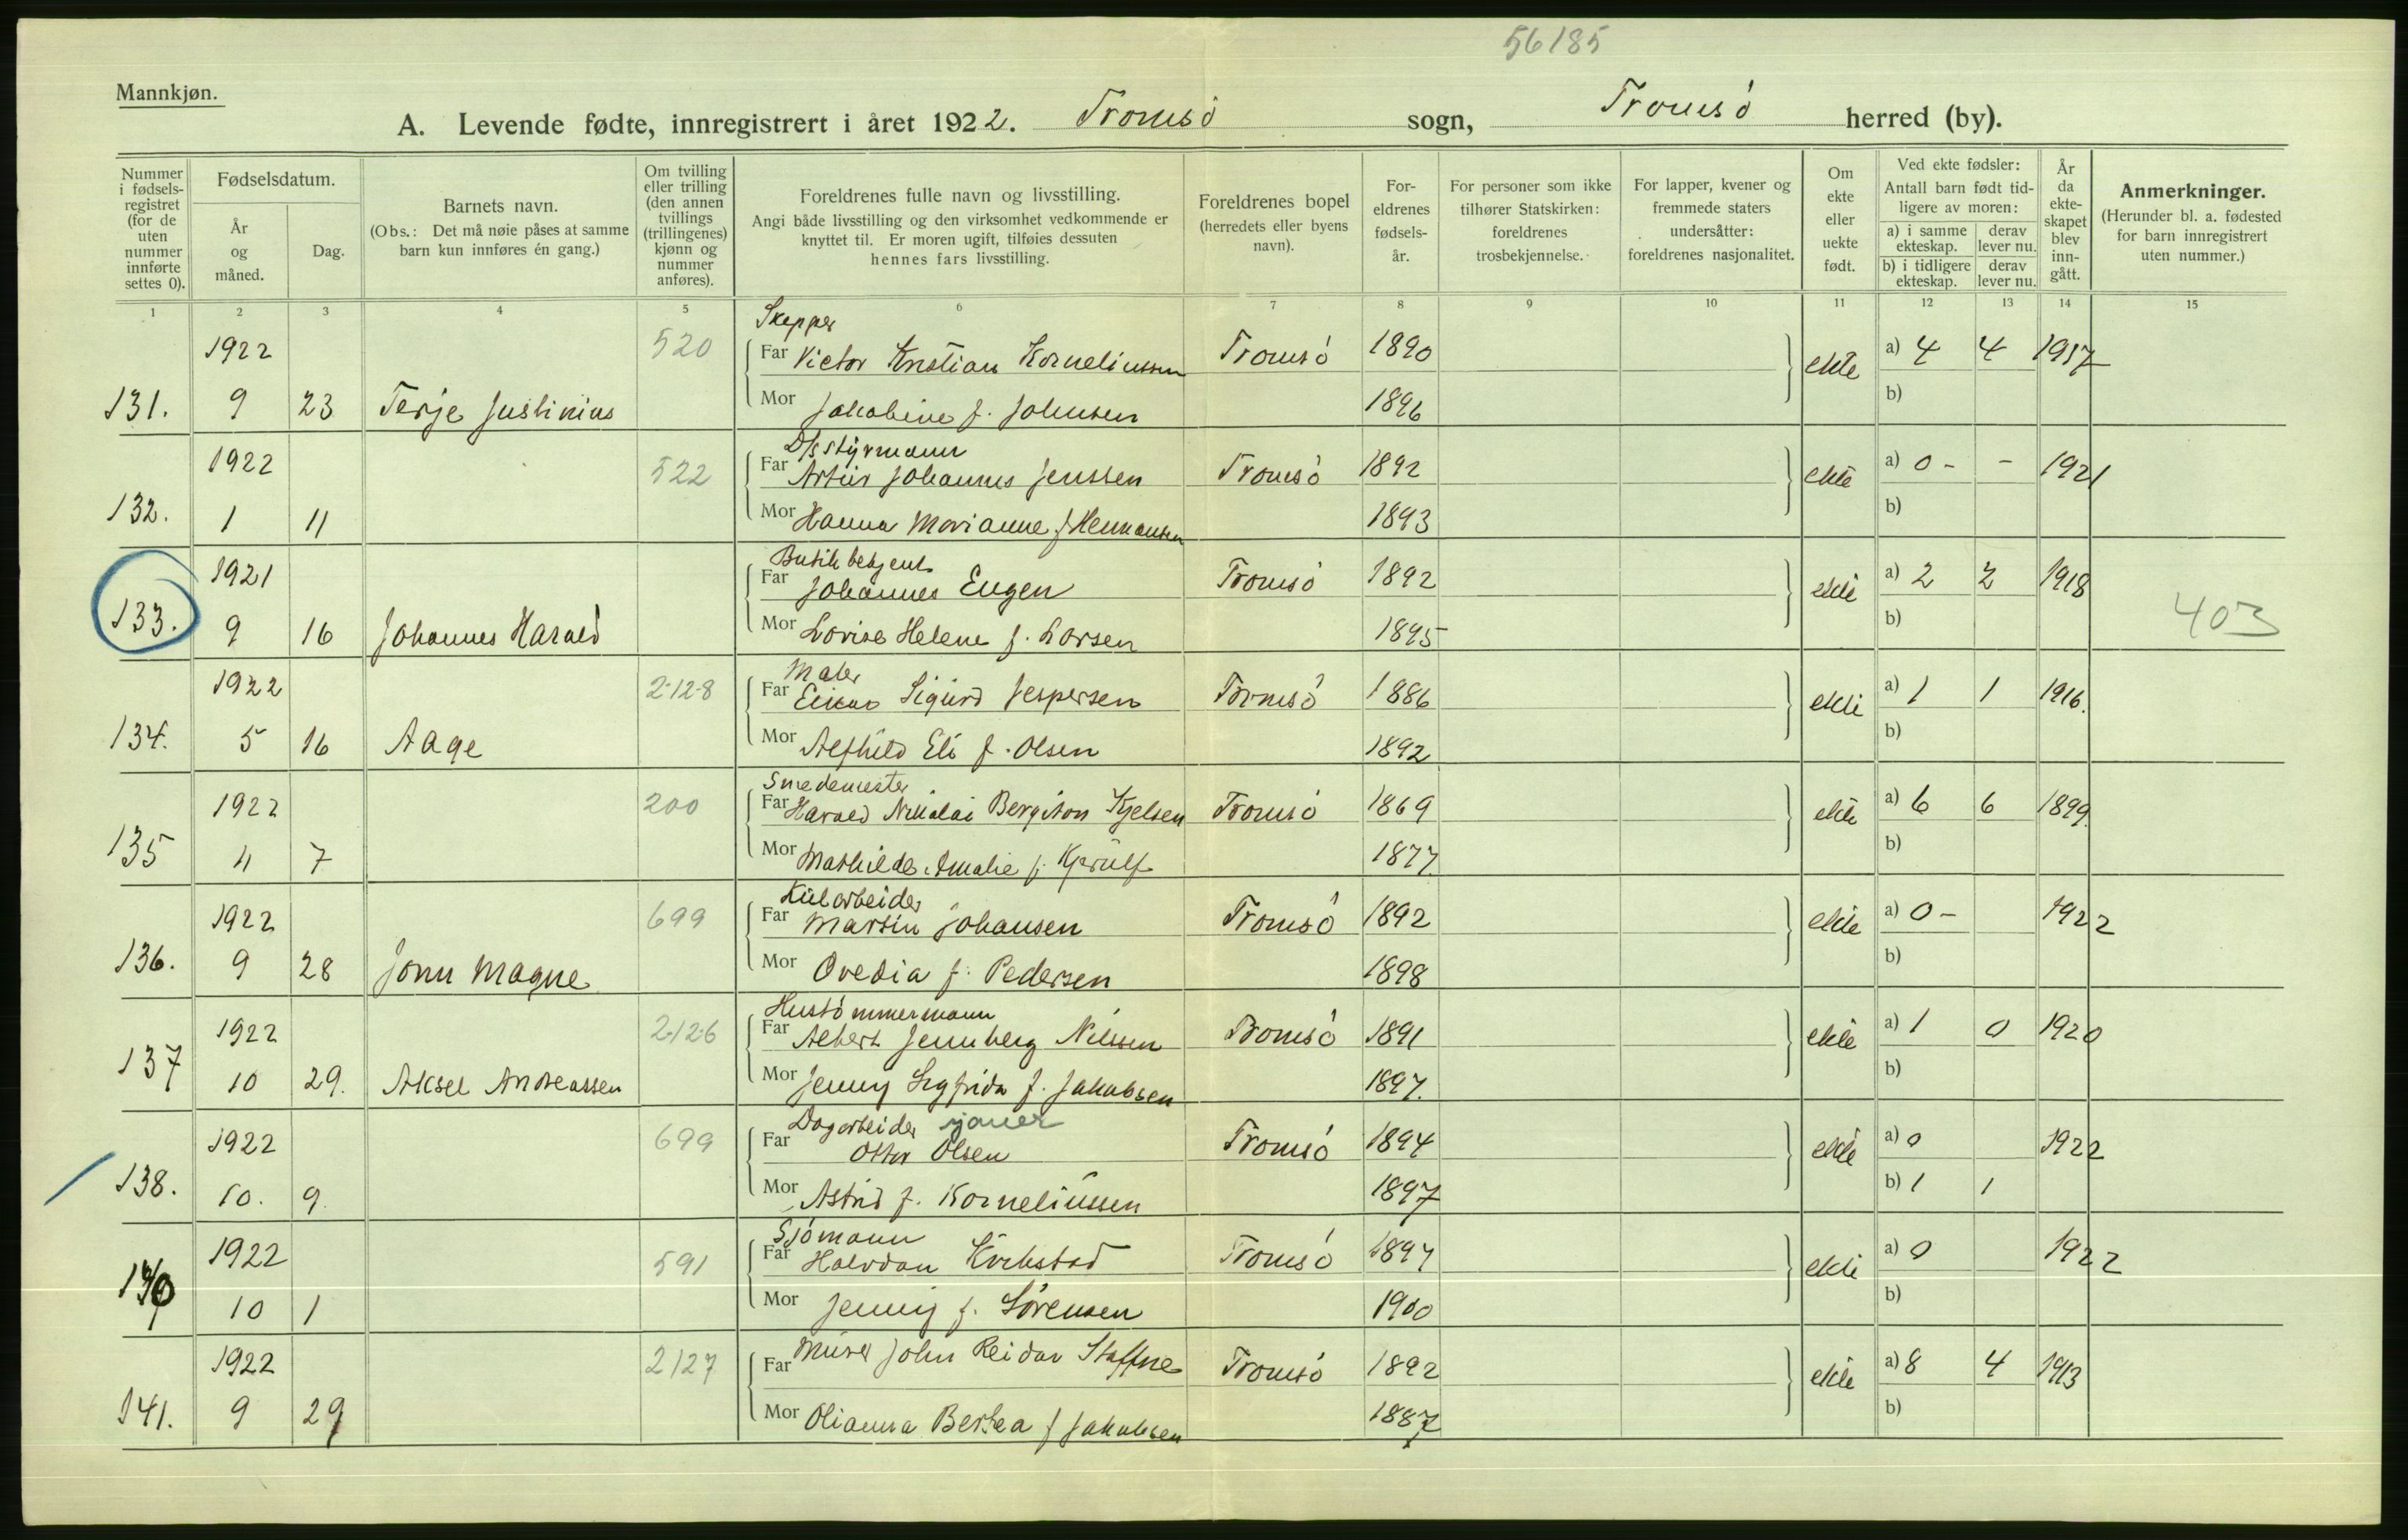 56185
Mannkjøn.
A. Levende fødte, innregistrert i året 1922. Tromsö sogn, Tromsö herred (by).
Nummer i fødsels-registret (for de uten nummer innførte settes 0).
Fødselsdatum.
År og måned.
Dag.
Barnets navn.
(Obs.: Det må nøie påses at samme barn kun innføres én gang.)
Om tvilling eller trilling (den annen tvillings (trillingenes) kjønn og nummer anføres).
Foreldrenes fulle navn og livsstilling.
Angi både livsstilling og den virksomhet vedkommende er knyttet til. Er moren ugift, tilføies dessuten hennes fars livsstilling.
Foreldrenes bopel (herredets eller byens navn).
For-eldrenes fødsels-år.
For personer som ikke tilhører Statskirken: foreldrenes trosbekjennelse.
For lapper, kvener og fremmede staters undersåtter: foreldrenes nasjonalitet.
Om ekte eller uekte født.
Ved ekte fødsler:
Antall barn født tid-ligere av moren:
a) i samme ekteskap. derav lever nu.
b) i tidligere ekteskap. derav lever nu.
År da ekte-skapet blev inn-gått.
Anmerkninger.
(Herunder bl. a. fødested for barn innregistrert uten nummer.)
1 2 3 4 5 6 7 8 9 10 11 12 13 14 15
Skipper
1922 520 Far Victor Kristian Korneliussen Tromsö 1890 ekte a) 4 4 1917
131. 9 23 Terje Justinius Mor Jakobine f. Johnsen 1896 b)
D/s styrmann
1922 522 Far Artur Johannes Jenssen Tromsö 1892 ekte a) 0 - - 1921
132. 1 11 Mor Hanna Marianne f Hermansen 1893 b)
Butikbetjent
1921 Far Johannes Eugen Tromsö 1892 ekte a) 2 2 1918
133. 9 16 Johannes Harald Mor Lovise Helene f. Larsen 1895 b) 403
Maler
1922 2-12-8 Far Einar Sigurd Jespersen Tromsö 1886 ekte a) 1 1 1916.
134. 5 16 Aage Mor Alfhild Eli f. Olsen 1892 b)
Smedemester
1922 200 Far Harald Nikolai Bergiton Kjelsen Tromsö 1869 ekte a) 6 6 1899.
135 4 7 Mor Mathilde Amalie f. 1877 b)
Kularbeider
1922 699 Far Martin Johansen Tromsö 1892 ekte a) 0 - 1922
136. 9 28 John Magne Mor Ovedia f. Pedersen 1898 b)
Hustömmermann
1922 2-12-6 Far Albert Jennberg Nilssen Tromsö 1891 ekte a) 1 0 1920
137 10 29. Aksel Andreassen Mor Jenny Sigfrida f. Jakobsen 1897. b)
Dagarbeider sjauer
1922 699 Far Ottar Olsen Tromsö 1894 ekte a) 0 1922
138. 10. 9. Mor Astrid f. Korneliussen 1897 b) 1 1
Sjömann
1922 591 Far Halvdan Tromsö 1897 ekte a) 0 1922
10 1 Mor Jenny f. Sörensen 1900 b)
1922 2127 Far Murer John Reidar Staffne Tromsö 1892 ekte a) 8 4 1913
141. 9 29 Mor Olianna Bertea f Jakobsen 1887 b)